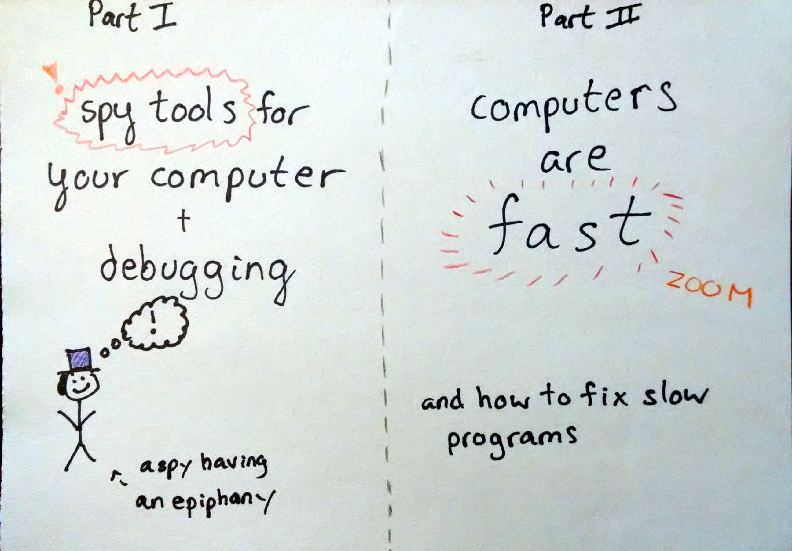 Part I
spy tools for
your computer
+
debugging
!
a spy having
an epiphany
Part II
computers
are
fast
ZOOM
and how to fix slow
programs